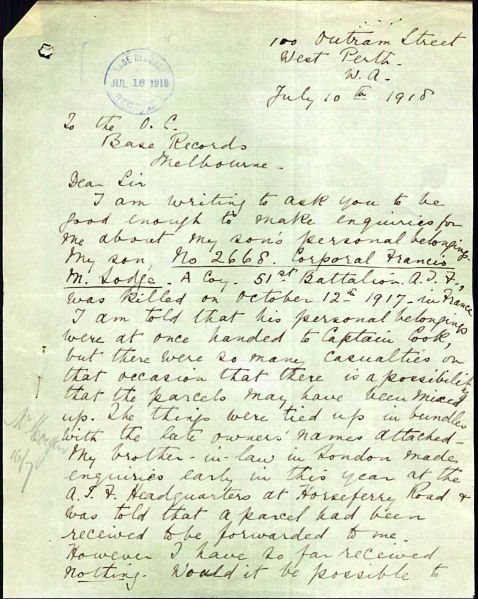 100 Outram Street
West Perth.
W. A.
July 10th 1918
BASE RECORDS
JUL 16 1918
REC
To the O. C.
Base Records
Melbourne.
Dear Sir
I am writing to ask you to be
good enough to make enquiries for
me about my son's personal belongings.
My son, No 2668. Corporal Francis
M. Lodge. A Coy. 51st Battalion. A.I.F.,
was killed on October 12th 1917 - in France
I am told that his personal belongings
were at once handed to Captain Cook,
but there were so many casualties on
that occasion that there is a possibility
that the parcels may have been mixed
up. The things were tied up in bundles
with the late owners' names attached -
My brother-in-law in London made
enquiries early in this year at the
A.I.F. Headquarters at Horseferry Road &
was told that a parcel had been
received to be forwarded to me.
However I have so far received
nothing. Would it be possible to
16/7